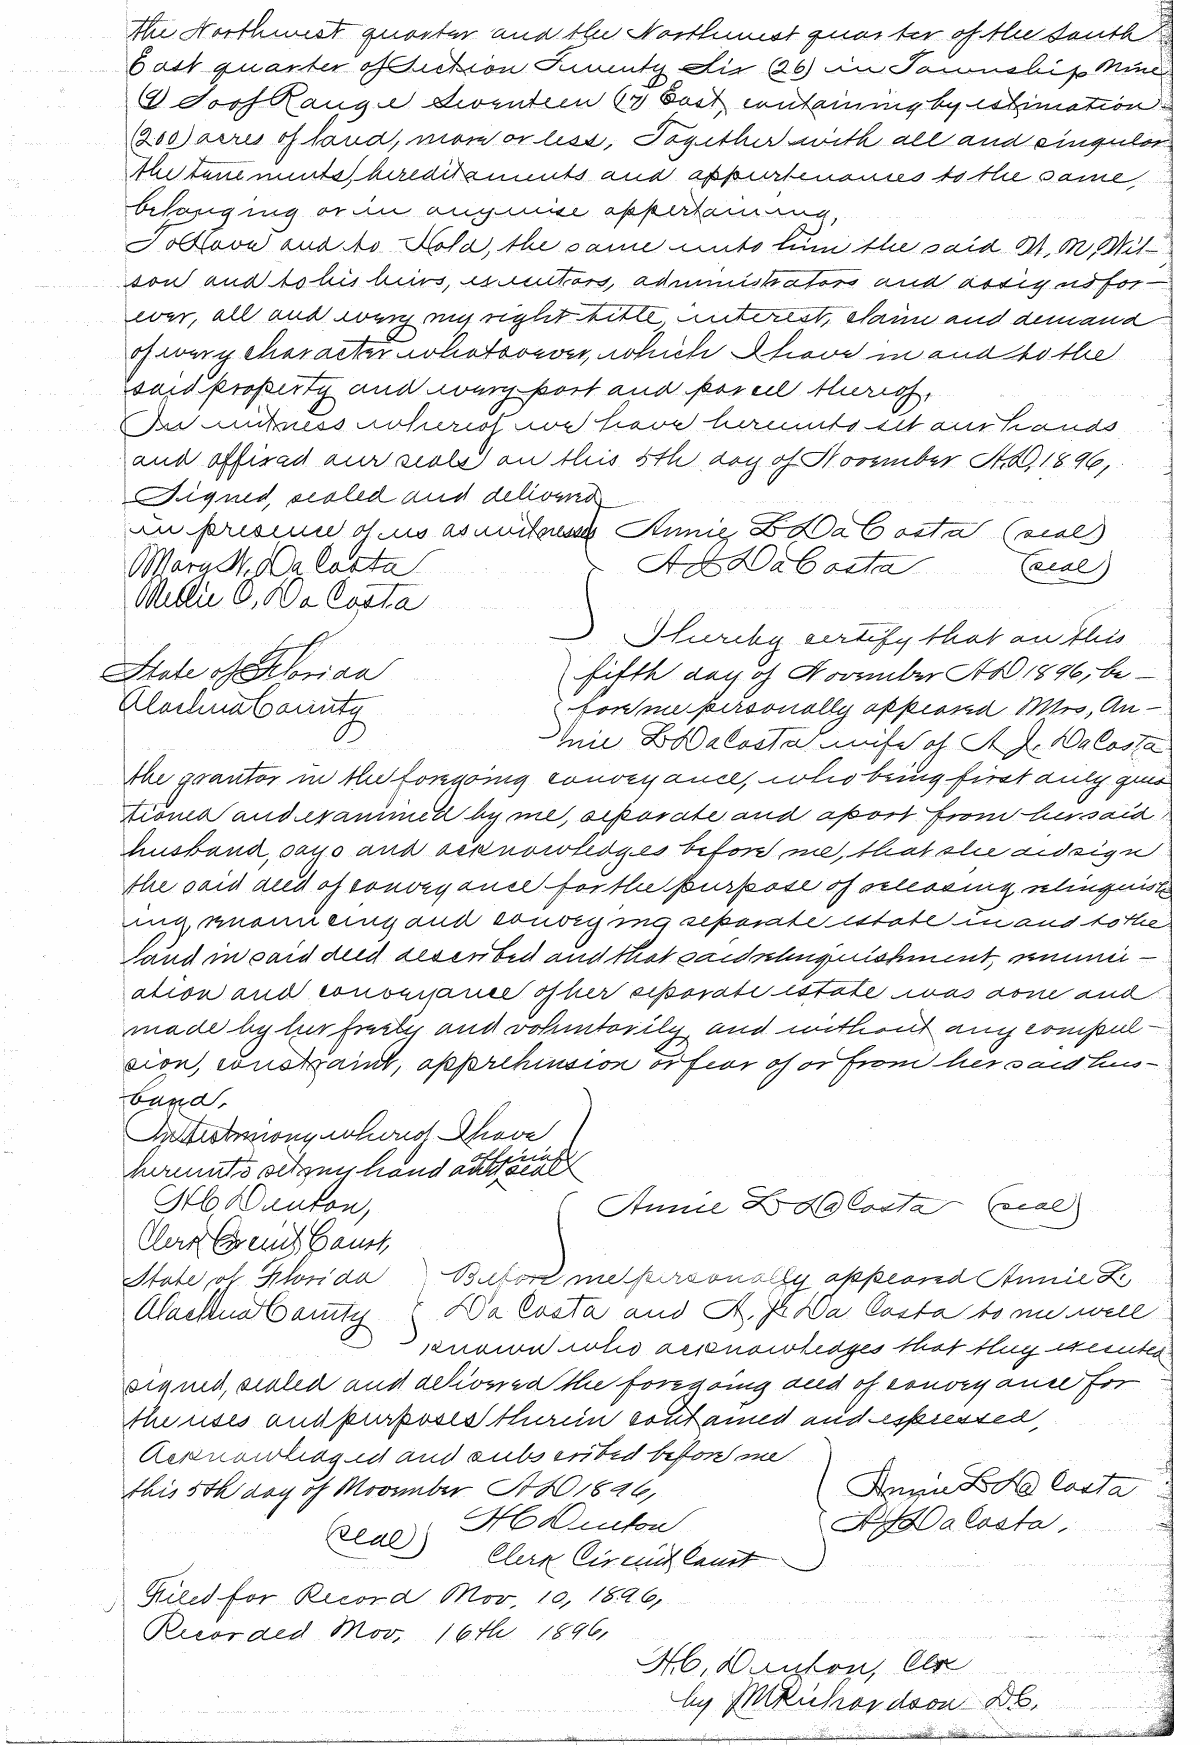 the Northwest quarter and the Northwest quarter of the South
East quarter of Section Twenty Six (26) in Township Nine
(9) S of Range Seventeen (17) East, containing by estimation
(200) acres of land, more or less, Together with all and singular
the tenements, hereditaments and appurtenances to the same,
belonging or in anywise appertaining,
To Have and to Hold, the same unto him the said N, M, Wil-
son and to his heirs, executors, administrators and assigns for-
ever, all and every my right title, interest, claim and demand
of every character whatsoever, which I have in and to the
said property and every part and parcel thereof,
In witness whereof we have hereunto set our hands
and affixed our seals on this 5th day of November A.D, 1896,
Signed, sealed and delivered
in presence of us as witnesses Annie L DaCosta (seal)
Mary W. Da Costa A J DaCosta (seal)
Mellie O, Da Costa
I hereby certify that on this
State of Florida fifth day of November A D 1896, be-
Alachua County fore me personally appeared Mrs, An-
nie L DaCosta wife of A J. DaCosta
the grantor in the foregoing conveyance, who being first duly ques
tioned and examined by me, separate and apart from her said
husband, says and acknowledges before me, that she did sign
the said deed of conveyance for the purpose of releasing, relinquish
ing, renouncing and conveying separate estate in and to the
land in said deed described and that said relinquishment, renunci-
ation and conveyance of her separate estate was done and
made by her freely and voluntarily and without any compul-
sion, constraint, apprehension or fear of or from her said hus-
band.
In testimony whereof I have
hereunto set my hand and official seal
H C Denton, Annie L DaCosta (seal)
Clerk Circuit Court,
State of Florida Before me personally appeared Annie L.
Alachua County Da Costa and A. J. Da Costa to me well
known who acknowledges that they executed
signed, sealed and delivered the foregoing deed of conveyance for
the uses and purposes therein contained and expressed,
Acknowledged and subscribed before me
this 5th day of November A D 1896, Annie L Da Costa
(seal) H C Denton A J DaCosta,
Clerk Circuit Court
Filed for Record Nov, 10, 1896,
Recorded Nov, 16th 1896,
H. C, Denton, Clk
by J M Richardson D C,